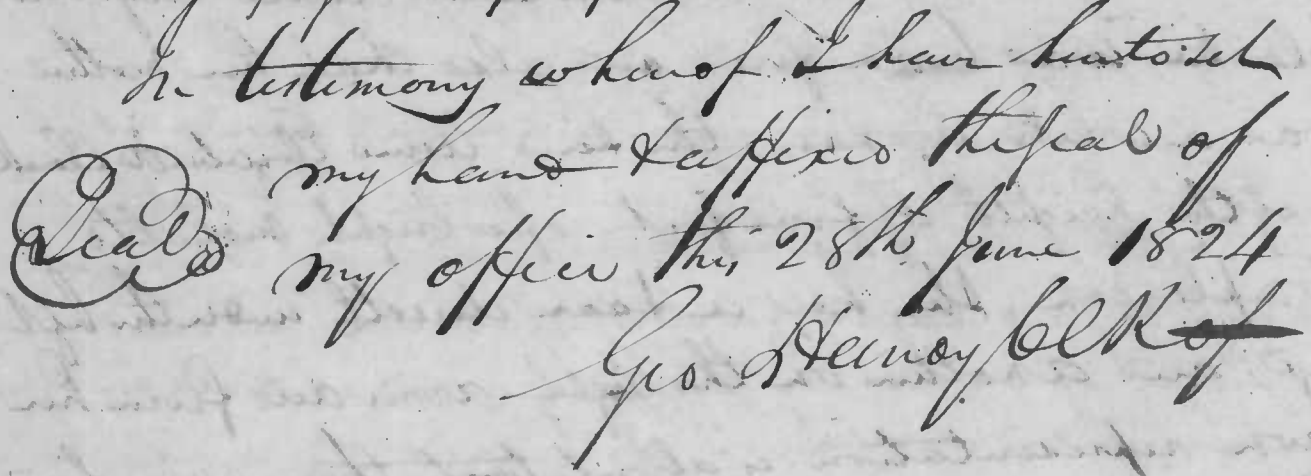 In testimony whereof I have hereto set
my hand & affixed the seal of
Seal
my office this 28th June 1824
Geo Clk of